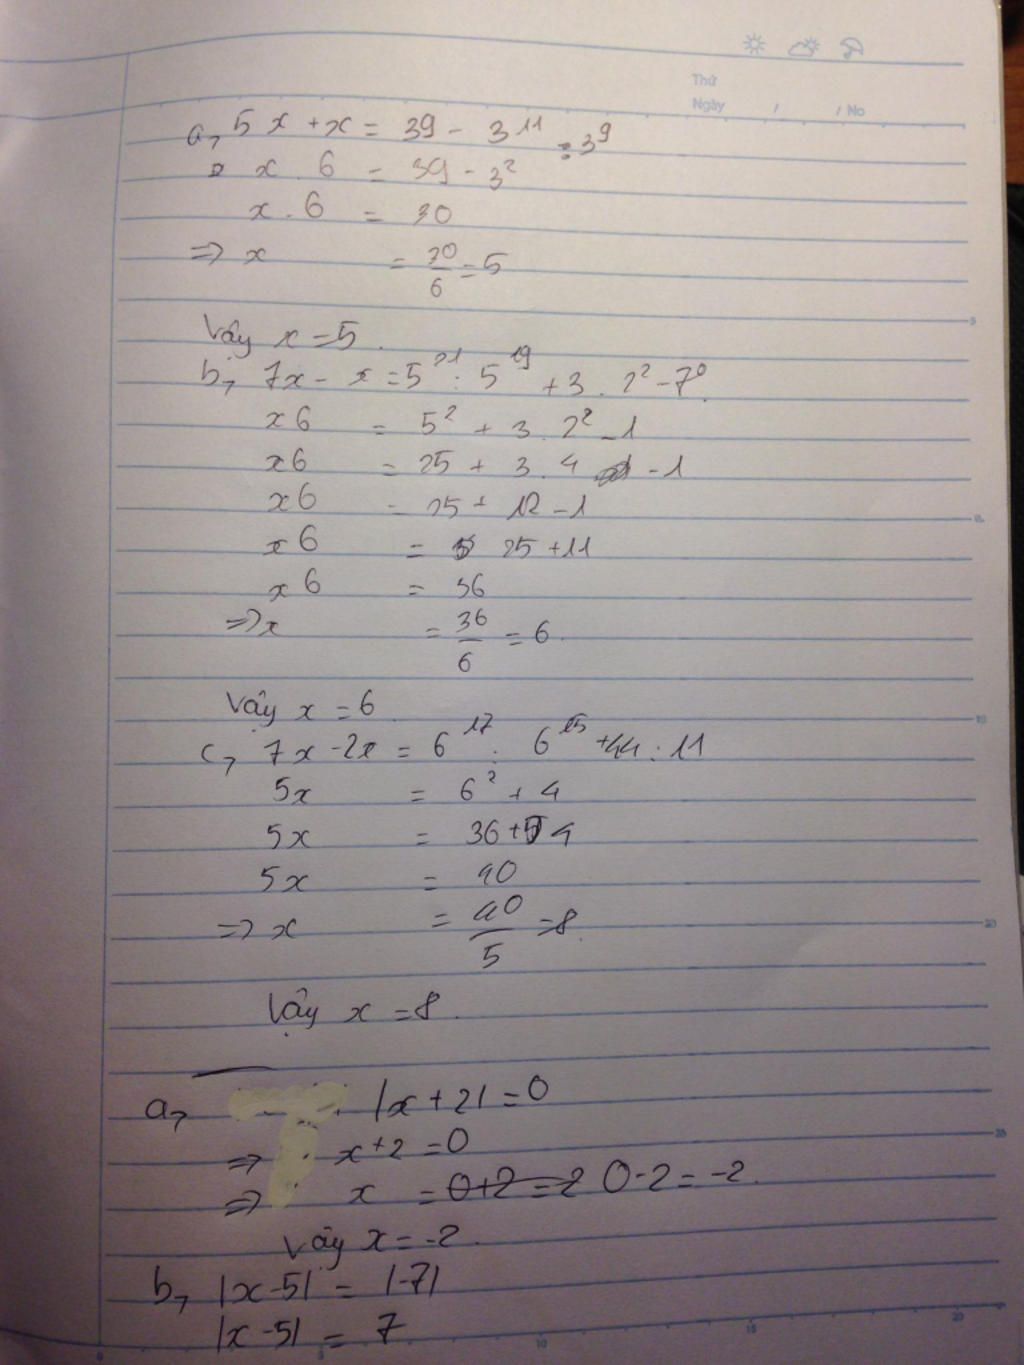 Thứ
Ngày / / No
a, 5x + x = 39 - 3¹¹ : 3⁹
x . 6 = 39 - 3²
x . 6 = 30
=> x = 30/6 = 5
Vậy x = 5.
b, 7x - x = 5²¹ : 5¹⁹ + 3 . 2² - 7⁰.
x 6 = 5² + 3 . 2² - 1
x 6 = 25 + 3 . 4 - 1
x 6 = 25 + 12 - 1
x 6 = 25 + 11
x 6 = 36
=> x = 36/6 = 6.
Vậy x = 6
c, 7x - 2x = 6¹⁷ : 6¹⁵ + 44 : 11
5x = 6² + 4
5x = 36 + 4
5x = 40
=> x = 40/5 = 8.
Vậy x = 8.
a, |x + 2| = 0
=> x + 2 = 0
=> x = 0+2 = 2 0 - 2 = -2.
Vậy x = -2.
b, |x - 5| = |-7|
|x - 5| = 7
5
10
15
20
25
0
5
10
15
20